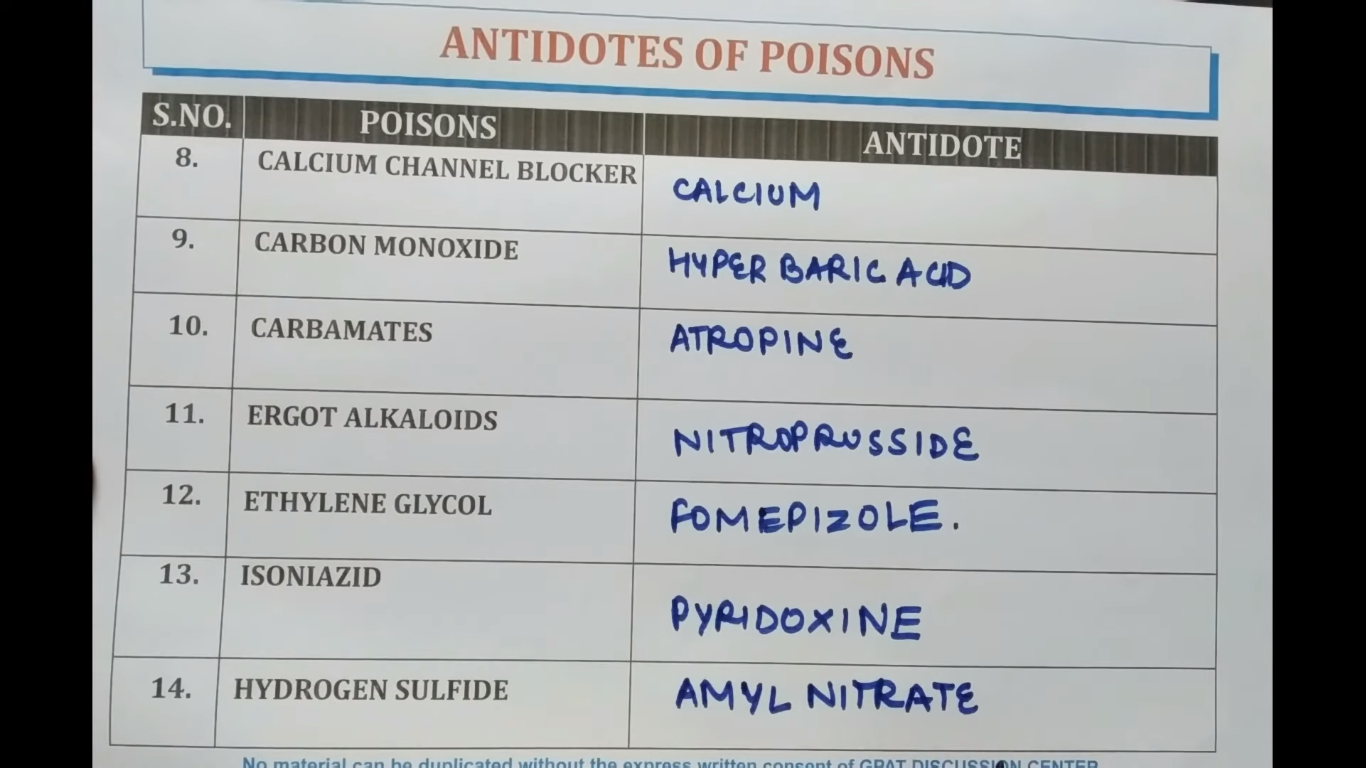 ANTIDOTES OF POISONS
S.NO. POISONS ANTIDOTE
8. CALCIUM CHANNEL BLOCKER CALCIUM
9. CARBON MONOXIDE HYPER BARIC ACID
10. CARBAMATES ATROPINE
11. ERGOT ALKALOIDS NITROPRUSSIDE
12. ETHYLENE GLYCOL FOMEPIZOLE.
13. ISONIAZID PYRIDOXINE
14. HYDROGEN SULFIDE AMYL NITRATE
No material can be duplicated without the express written consent of GPAT DISCUSSION CENTER